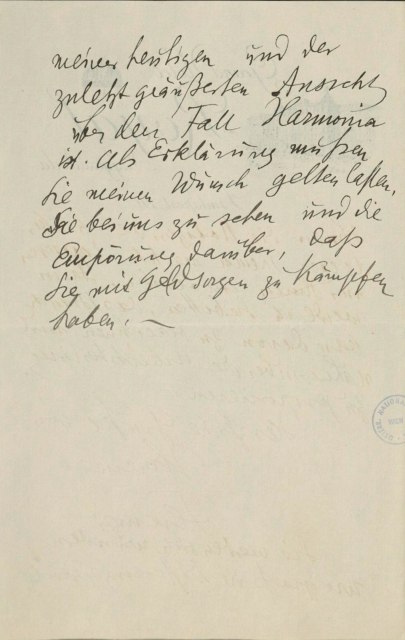 meiner heutigen und der
zuletzt geäußerten Ansicht
über den Fall Harmonia
ist. Als Erklärung müßen
Sie meinen Wunsch gelten laßen,
Sie bei uns zu sehen und die
Empörung darüber, daß
Sie mit Geldsorgen zu kämpfen
haben. —